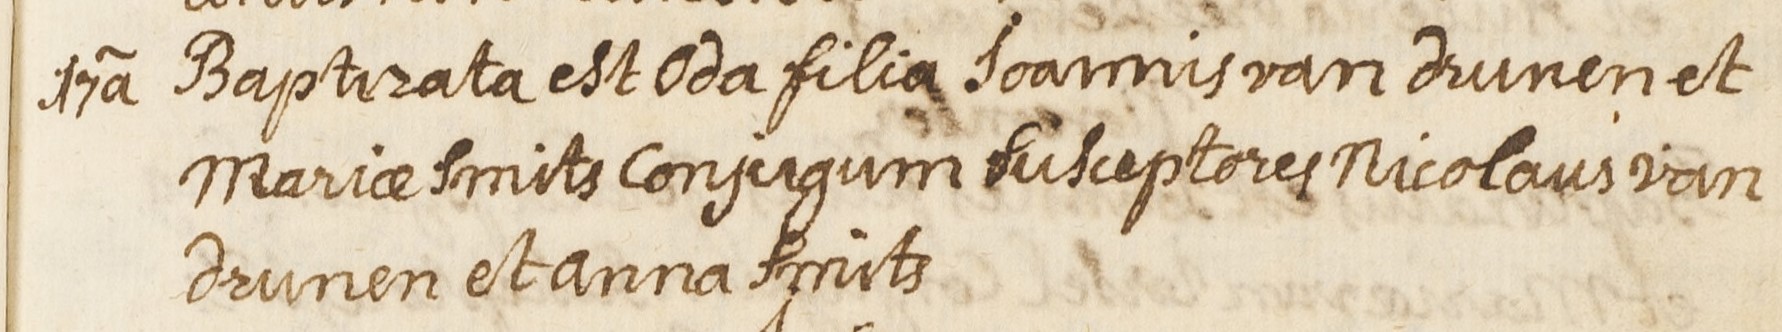 17a Baptizata est Oda filia Joannis van drunen et
Mariæ Smits Conjugum Susceptores Nicolaus van
drunen et Anna Smits